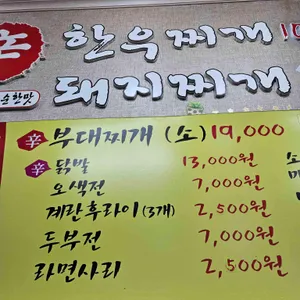 한우찌개 10
돼지찌개
순한맛
辛 부대찌개 (소) 19,000
辛 닭발 13,000원
오색전 7,000원
계란후라이 (3개) 2,500원
두부전 7,000원
라면사리 2,500원
소